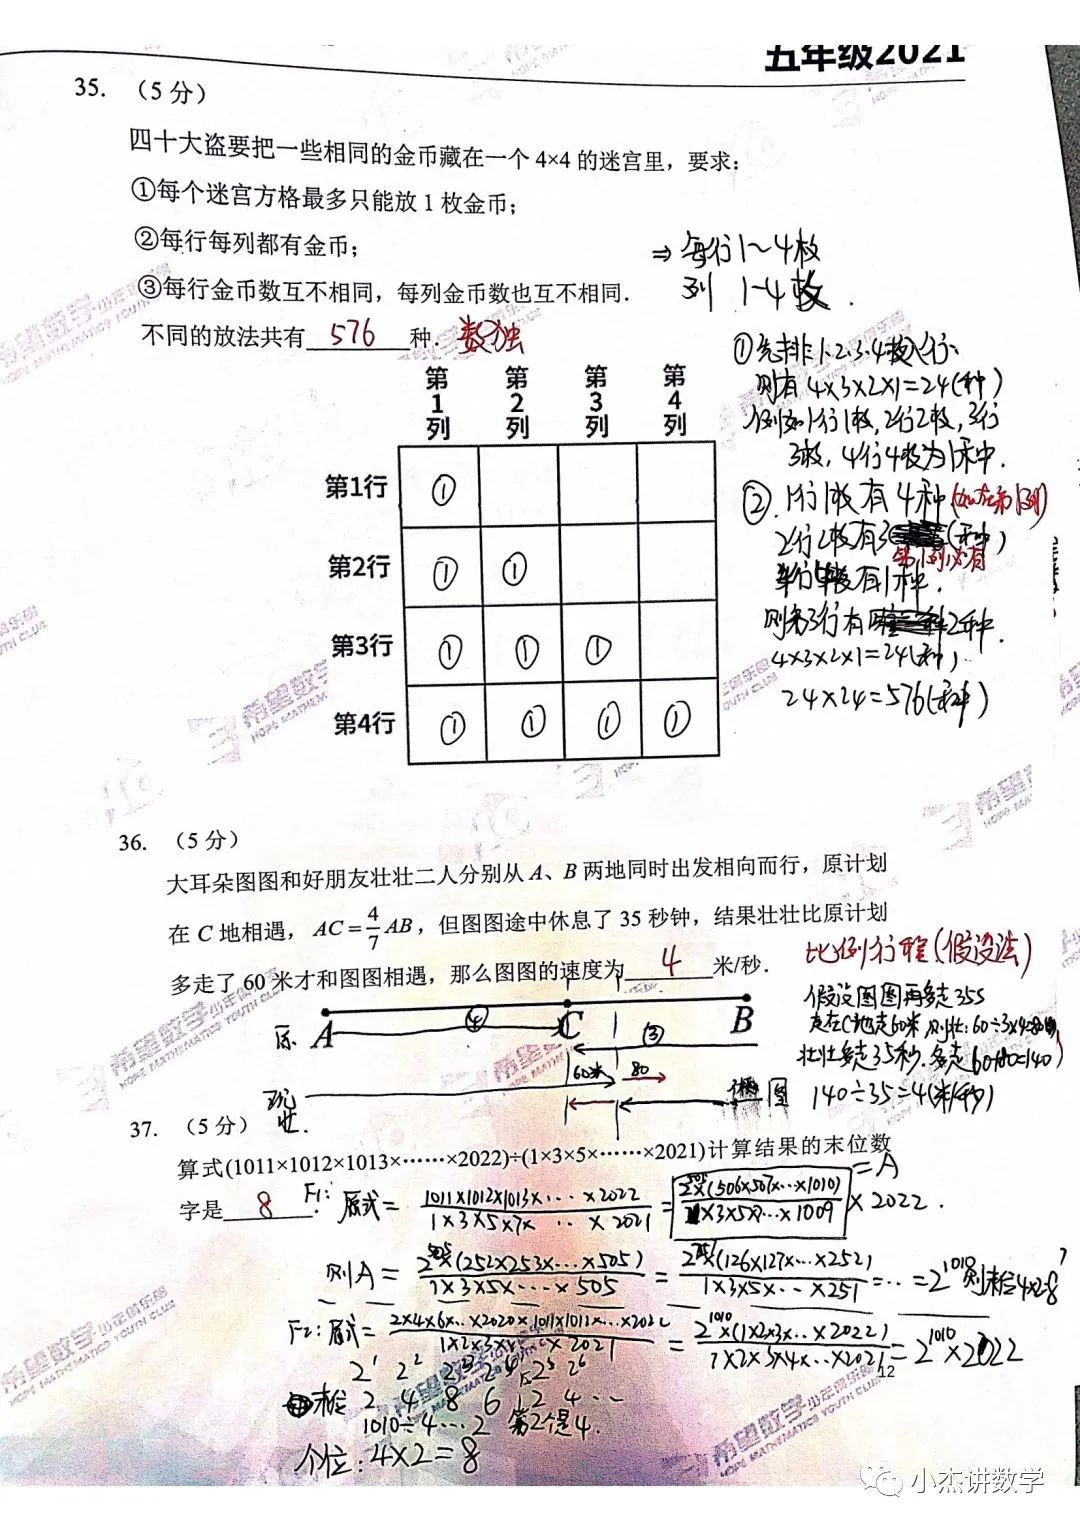 五年级2021
35. （5 分）
四十大盗要把一些相同的金币藏在一个 4×4 的迷宫里，要求：
①每个迷宫方格最多只能放 1 枚金币；
②每行每列都有金币；
③每行金币数互不相同，每列金币数也互不相同．
不同的放法共有 576 种． 数独
⇒ 每行1～4枚
列 1-4枚．
第1列 第2列 第3列 第4列
第1行 ①
第2行 ① ①
第3行 ① ① ①
第4行 ① ① ① ①
①先排1.2.3.4枚入行:
则有 4×3×2×1=24(种)
例如1行1枚,2行2枚,3行
3枚,4行4枚为1种中.
②.1行1枚有4种
2行2枚有3 (种)
第1列必有
有1种.
则第3行有 2种.
4×3×2×1=24(种)
24×24=576(种)
36. （5 分）
大耳朵图图和好朋友壮壮二人分别从 A、B 两地同时出发相向而行，原计划
在 C 地相遇，AC=4/7 AB，但图图途中休息了 35 秒钟，结果壮壮比原计划
多走了 60 米才和图图相遇，那么图图的速度为 4 米/秒．
比例行程(假设法)
假设图图再多走35s
壮壮多走35秒.多走60+80=140
140÷35=4(米/秒)
原 A ④ C ③ B
60米 80
现 图
壮.
37. （5 分）
算式(1011×1012×1013×……×2022)÷(1×3×5×……×2021)计算结果的末位数
字是 8 ．
F1: 原式= 1011×1012×1013×...×2022 / 1×3×5×7×...×2021 = (506×507×...×1010) / 1×3×5×...×1009 ×2022 . =A
则A= (252×253×...×505) / 1×3×5×...×505 = (126×127×...×252) / 1×3×5×...×251 =...=2^1010 则末位4×2=8
F2: 原式= 2×4×6×...×2020×1011×1011×...×2022 / 1×2×3×...×2021 = 2^1010×(1×2×3×...×2022) / 1×2×3×4×...×2021 = 2^1010×2022
12
2^1 2^2 2^3 2^4 2^5 2^6
末位 2 4 8 6 2 4 ...
1010÷4...2 第2个是4.
个位: 4×2=8
希望数学 少年俱乐部
HOPE MATHEMATICS YOUTH CLUB
小杰讲数学